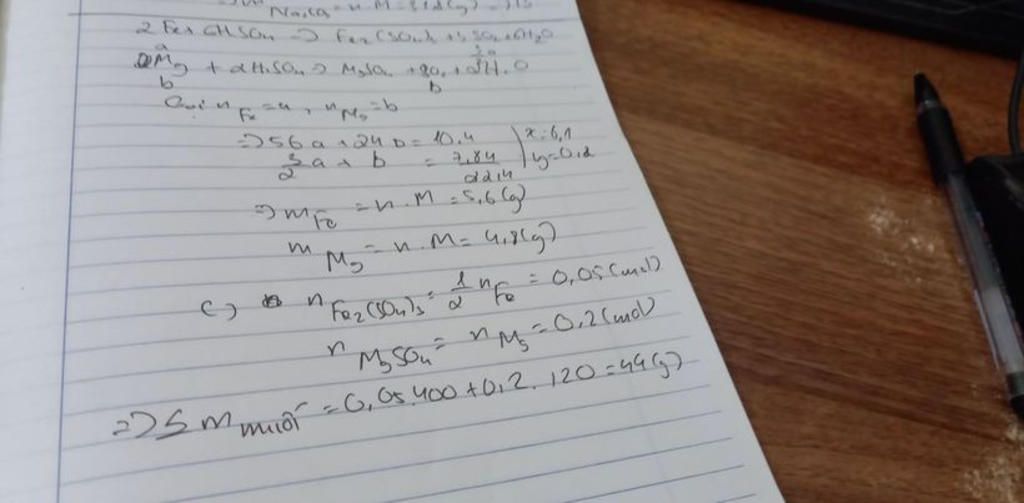 2 Fe + 6H₂SO₄ => Fe₂(SO₄)₃ + 3SO₂ + 6H₂O
a
3/2a
Mg + 2H₂SO₄ => MgSO₄ + SO₂ + 2H₂O
b b
Gọi n Fe = a, n Mg = b
=> 56a + 24b = 10,4 x = 0,1
3/2 a + b = 7,84/22,4 y = 0,2
=> m Fe = n . M = 5,6 (g)
m Mg = n . M = 4,8 (g)
c) n Fe₂(SO₄)₃ = 1/2 n Fe = 0,05 (mol)
n MgSO₄ = n Mg = 0,2 (mol)
=> Σ m muối = 0,05.400 + 0,2.120 = 44 (g)